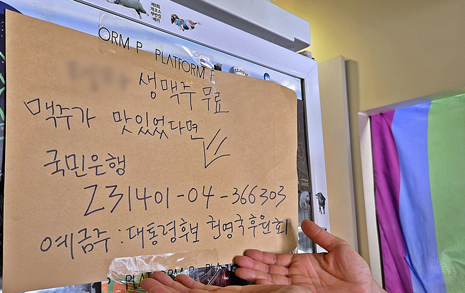 ORM P PLATFORM
생맥주 무료
맥주가 맛있었다면
국민은행
231401-04-366303
예금주 : 대통령후보 권영국후원회